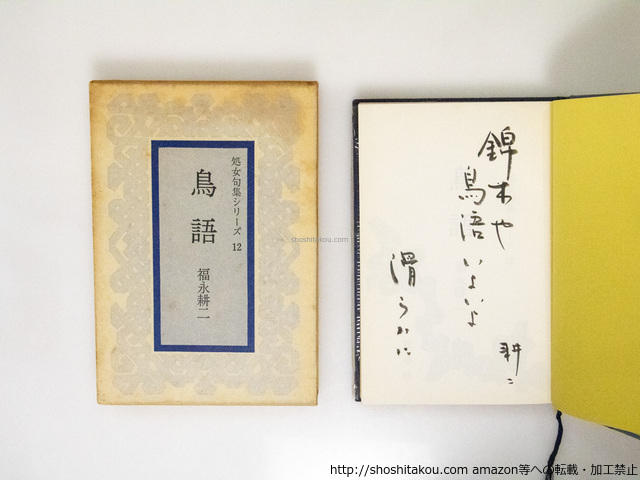 処女句集シリーズ 12
鳥語
福永耕二
錦木や
鳥語いよいよ
滑らかに
耕二
shoshitakou.com
http://shoshitakou.com amazon等への転載・加工禁止